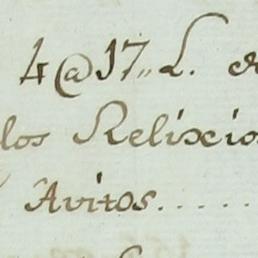 4@17,, L. de
los Relixio
Avitos......